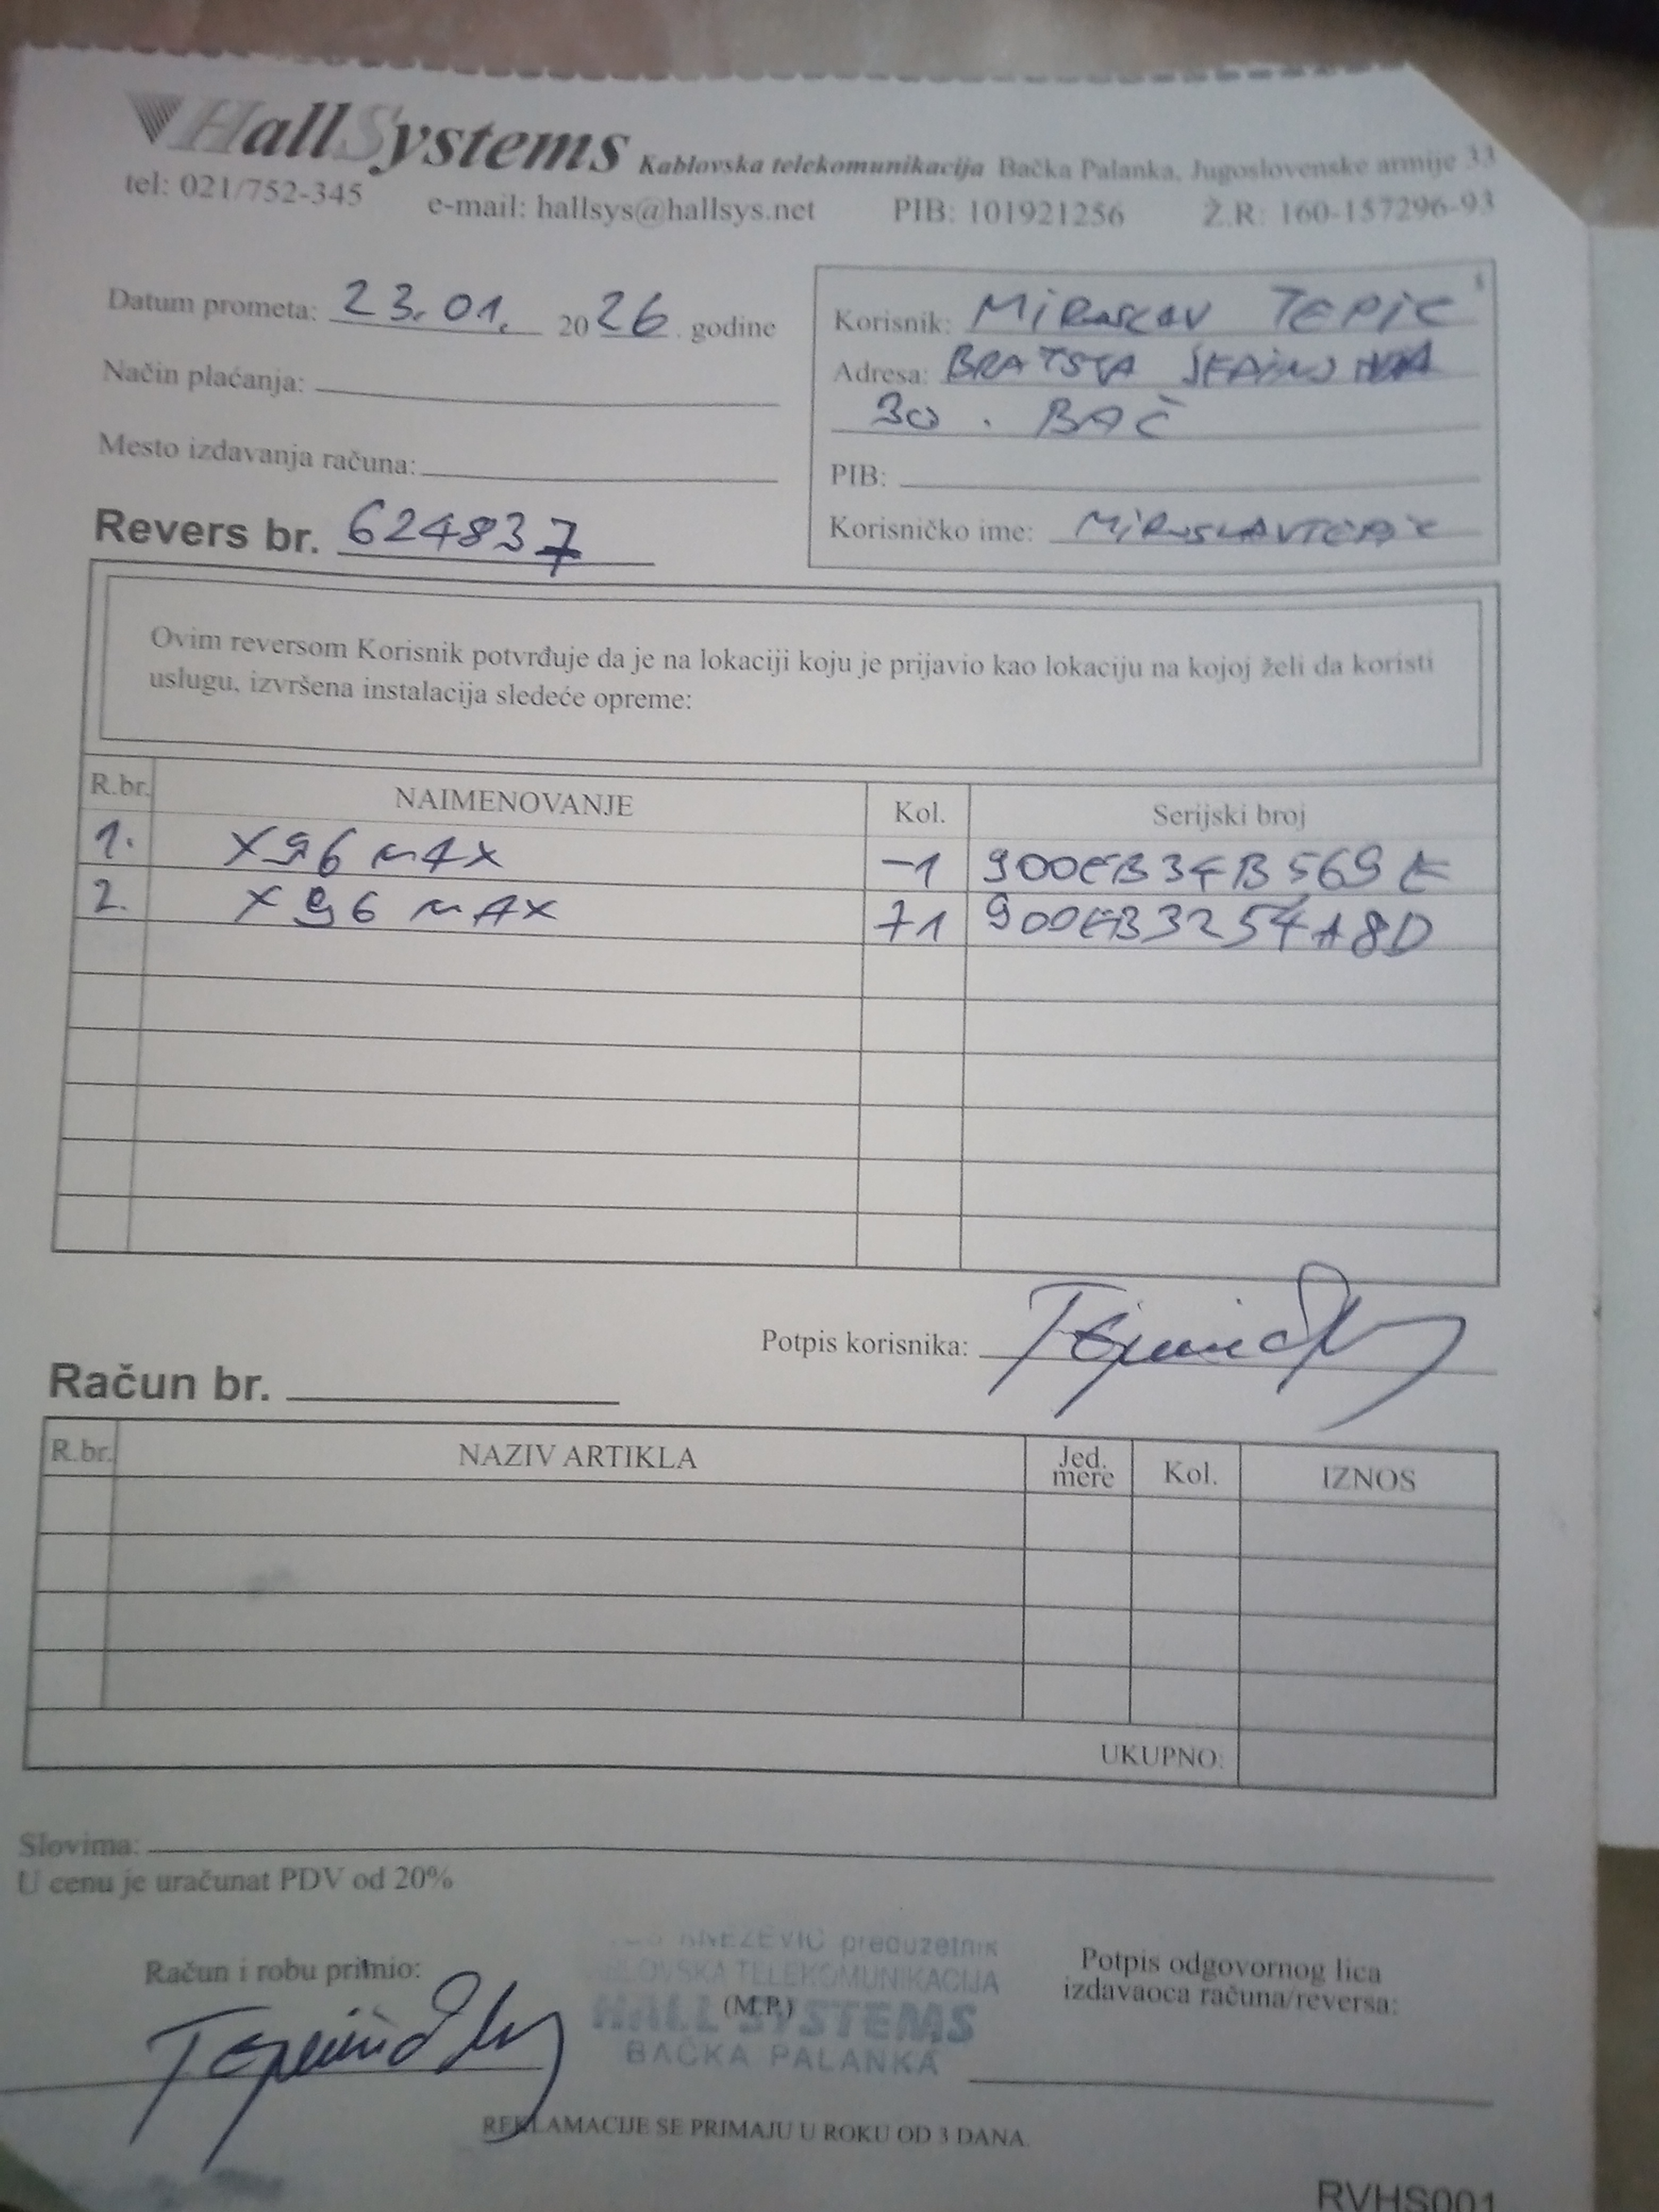 HallSystems Kablovska telekomunikacija Bačka Palanka, Jugoslovenske armije 33
tel: 021/752-345 e-mail: hallsys@hallsys.net PIB: 101921256 Ž.R: 160-157296-93
Datum prometa: 23.01. 2026. godine
Način plaćanja:
Mesto izdavanja računa:
Revers br. 624837
Korisnik: MIROSLAV TEPIC
Adresa: BRATSTA
30. BAČ
PIB:
Korisničko ime: MIROSLAVTEPIC
Ovim reversom Korisnik potvrđuje da je na lokaciji koju je prijavio kao lokaciju na kojoj želi da koristi
uslugu, izvršena instalacija sledeće opreme:
R.br. NAIMENOVANJE Kol. Serijski broj
1. X96 MAX 1
2. X96 MAX 1 900EB3254A8D
Potpis korisnika:
Račun br.
R.br. NAZIV ARTIKLA Jed. mere Kol. IZNOS
UKUPNO:
Slovima:
U cenu je uračunat PDV od 20%
Račun i robu primio:
KNEZEVIĆ preduzetnik
TELEKOMUNIKACIJA
(M.P.)
HALL SYSTEMS
BAČKA PALANKA
Potpis odgovornog lica
izdavaoca računa/reversa:
REKLAMACIJE SE PRIMAJU U ROKU OD 3 DANA.
RVHS001